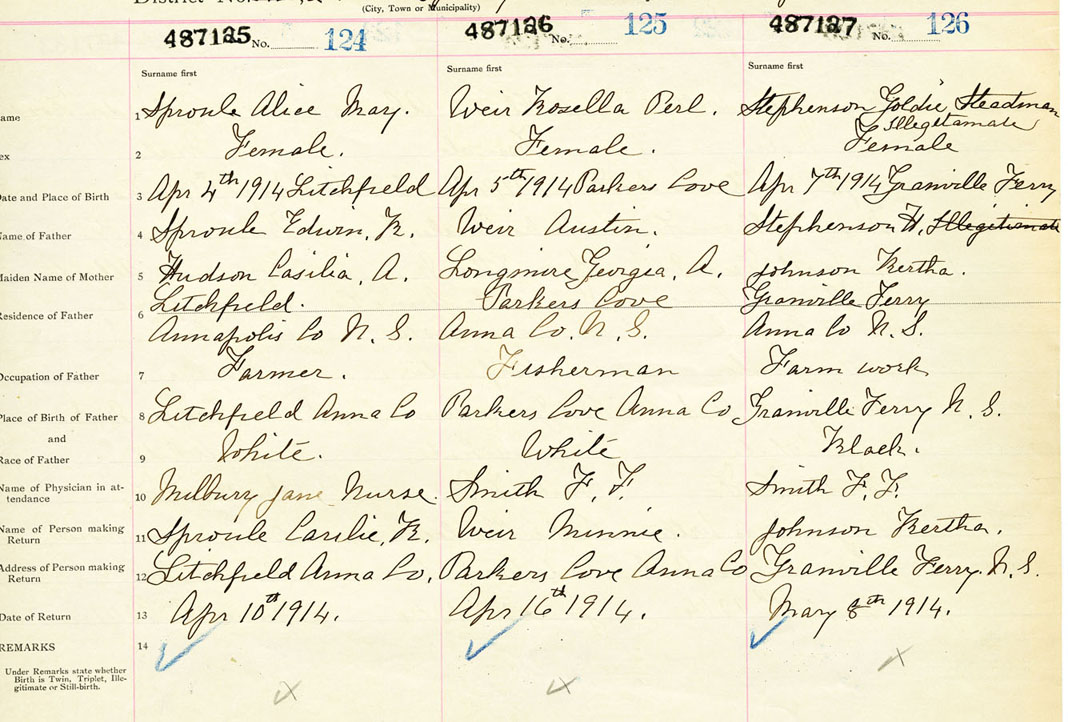 District No.
(City, Town or Municipality)
487125 No. 124 487126 No. 125 487127 No. 126
Surname first Surname first Surname first
ame 1 Sproule Alice May. Weir Rosella Perl. Stephenson Goldie Steadman
Illegetamate
ex 2 Female. Female. Female
Date and Place of Birth 3 Apr 4th 1914 Litchfield Apr 5th 1914 Parkers Cove Apr 7th 1914 Granville Ferry
Name of Father 4 Sproule Edwin, R. Weir Austin. Stephenson H, Illegitimate
Maiden Name of Mother 5 Hudson Casilia, A. Longmire Georgia, A. Johnson Bertha.
Litchfield. Parkers Cove Granville Ferry
Residence of Father 6 Annapolis Co N. S. Anna Co. N. S. Anna Co N. S.
Occupation of Father 7 Farmer. Fisherman Farm work
Place of Birth of Father 8 Litchfield Anna Co Parkers Cove Anna Co Granville Ferry N. S.
and
Race of Father 9 White. White Black.
Name of Physician in at-
tendance 10 Milbury Jane Nurse. Smith F. F. Smith F. F.
Name of Person making
Return 11 Sproule Casilie, R. Weir Minnie. Johnson Bertha.
Address of Person making
Return 12 Litchfield Anna Co. Parkers Cove Anna Co Granville Ferry. N. S.
Date of Return 13 Apr 10th 1914. Apr 16th 1914. May 8th 1914.
REMARKS 14
Under Remarks state whether
Birth is Twin, Triplet, Ille-
gitimate or Still-birth.